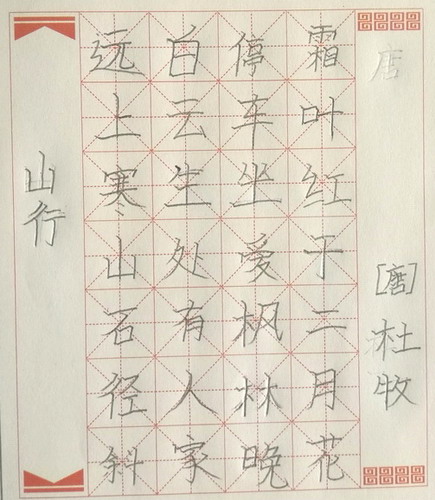 山行
远上寒山石径斜
白云生处有人家
停车坐爱枫林晚
霜叶红于二月花
唐
[唐]杜牧